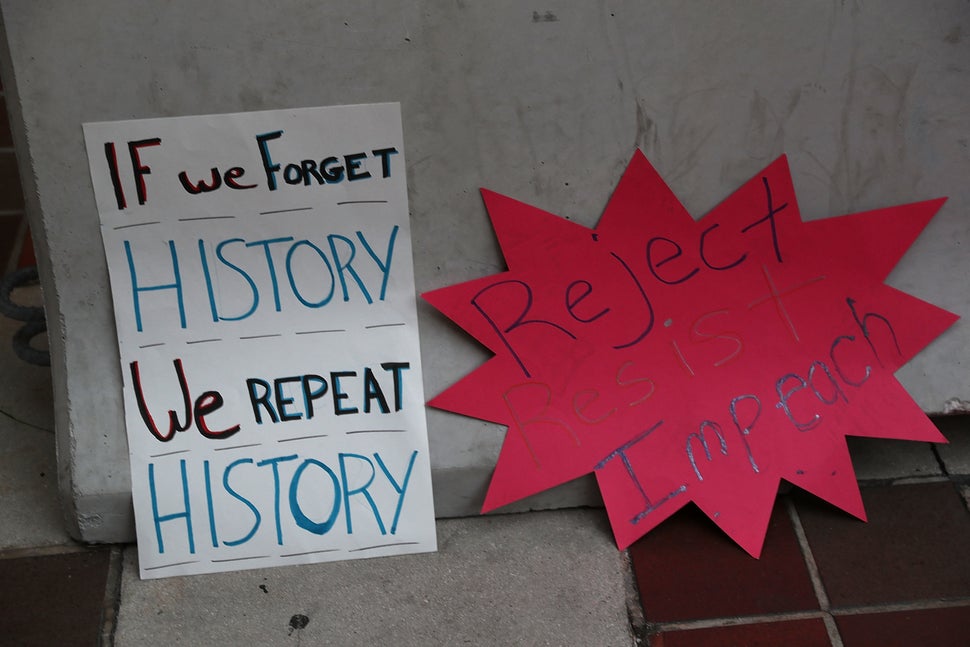 IF we FORGET
HISTORY
We REPEAT
HISTORY
Reject
Resist
Impeach